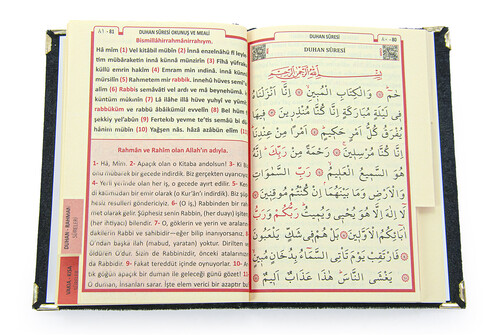 A 1 - 81
DUHAN SÛRESİ OKUNUŞ VE MEALİ
Bismillâhirrahmânirrahıym.
Hâ mîm (1) Vel kitâbil mübîn (2) İnnâ enzelnâhü fî ley
tim mübâraketin innâ künnâ münzirîn (3) Fîhâ yüfrak
küllü emrin hakîm (4) Emram min ındinâ. innâ künnâ
mürsilîn (5) Rahmetem mir rabbik, innehû hüves semî
alîm (6) Rabbis semâvâti vel ardı ve mâ beynehümâ. i
küntüm mûkınîn (7) Lâ ilâhe illâ hüve yuhyî ve yümît
rabbüküm ve rabbü âbâikümül evvelîn (8) Bel hüm
şekkiy yel'abûn (9) Fertekıb yevme te'tis semâü bi dü
hânim mübîn (10) Yağşen nâs. hâzâ azâbün elîm (1
Rahmân ve Rahîm olan Allah'ın adıyla.
1- Hâ, Mîm. 2- Apaçık olan o Kitaba andolsun! 3- Ki Bi
onu mübarek bir gecede indirdik. Biz gerçekten uyarıcıy
4- Yerli yerinde olan her iş, o gecede ayırt edilir. 5-
ki katımızdan bir emir olarak (o Kur'ân'ı indirdik). Biz şüp
hesiz resulleri göndericiyiz. 6- (O iş,) Rabbinden bir ra
met olarak gelir. Şüphesiz senin Rabbin, (her duayı) işite
(her ihtiyacı) bilendir. 7- O, göklerin ve yerin ve araların
dakilerin Rabbi ve sahibidir—eğer bilip inanıyorsanız.
O'ndan başka ilah (mabud, yaratan) yoktur. Dirilten v
öldüren O'dur. Sizin de Rabbinizdir, önceki atalarınızı
da Rabbidir. 9- Fakat tereddüt içinde oynuyorlar. 10- A
tık göğün apaçık bir duman ile geleceği günü gözet! 1
O duman, insanları sarar. İşte elem verici bir azaptır b
DUHAN - RAHMAN
SÛRELERİ
DUHAN SÛRESİ
A 1 - 80
DUHAN SÛRESİ
بِسْمِ اللّٰهِ الرَّحْمٰنِ الرَّحِيمِ
حٰمٓ ﴿١﴾ وَالْكِتَابِ الْمُبِينِ ﴿٢﴾ اِنَّٓا اَنْزَلْنَاهُ
فِي لَيْلَةٍ مُبَارَكَةٍ اِنَّا كُنَّا مُنْذِرِينَ ﴿٣﴾ فِيهَا
يُفْرَقُ كُلُّ اَمْرٍ حَكِيمٍ ﴿٤﴾ اَمْرًا مِنْ عِنْدِنَا
اِنَّا كُنَّا مُرْسِلِينَ ﴿٥﴾ رَحْمَةً مِنْ رَبِّكَ اِنَّهُ
هُوَ السَّمِيعُ الْعَلِيمُ ﴿٦﴾ رَبِّ السَّمٰوَاتِ
وَالْاَرْضِ وَمَا بَيْنَهُمَا اِنْ كُنْتُمْ مُوقِنِينَ ﴿٧﴾
لَٓا اِلٰهَ اِلَّا هُوَ يُحْيِي وَيُمِيتُ رَبُّكُمْ وَرَبُّ
اٰبَٓائِكُمُ الْاَوَّلِينَ ﴿٨﴾ بَلْ هُمْ فِي شَكٍّ يَلْعَبُونَ ﴿٩﴾
فَارْتَقِبْ يَوْمَ تَأْتِي السَّمَٓاءُ بِدُخَانٍ مُبِينٍ ﴿١٠﴾
يَغْشَى النَّاسَ هٰذَا عَذَابٌ اَلِيمٌ ﴿١١﴾